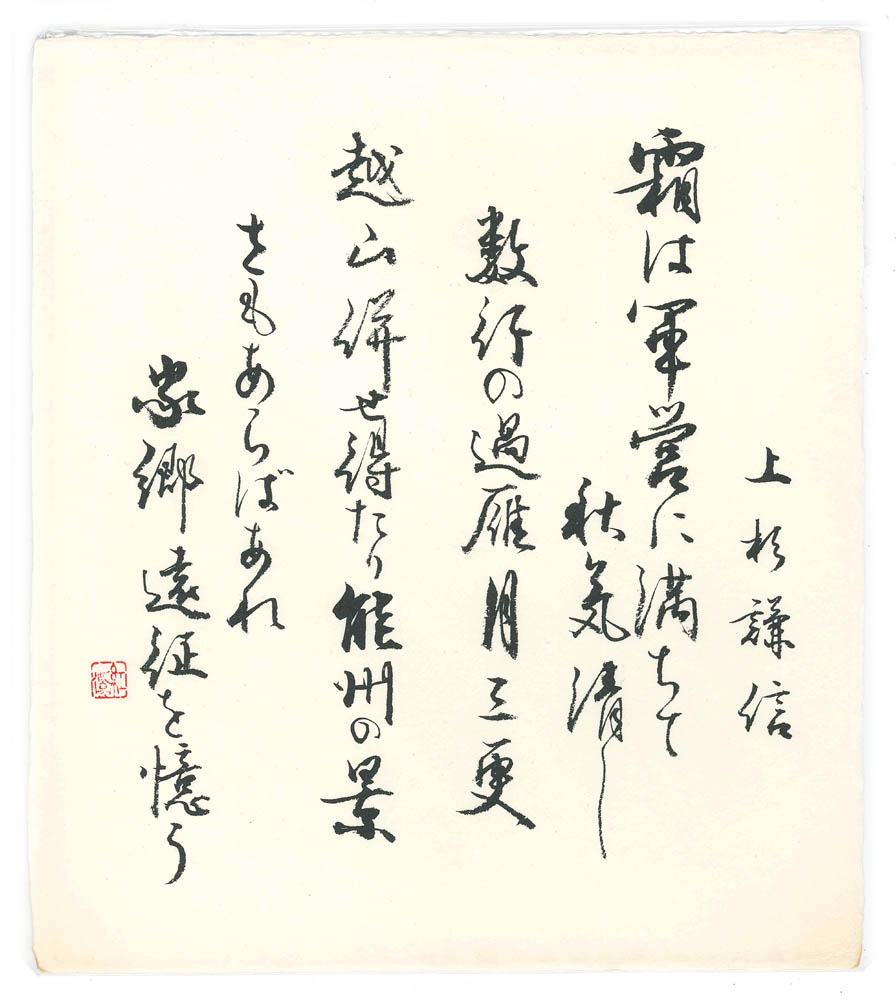 上杉謙信
霜は軍営に満ちて
秋気清し
数行の過雁月三更
越山併せ得たり能州の景
さもあらばあれ
家郷遠征を憶う